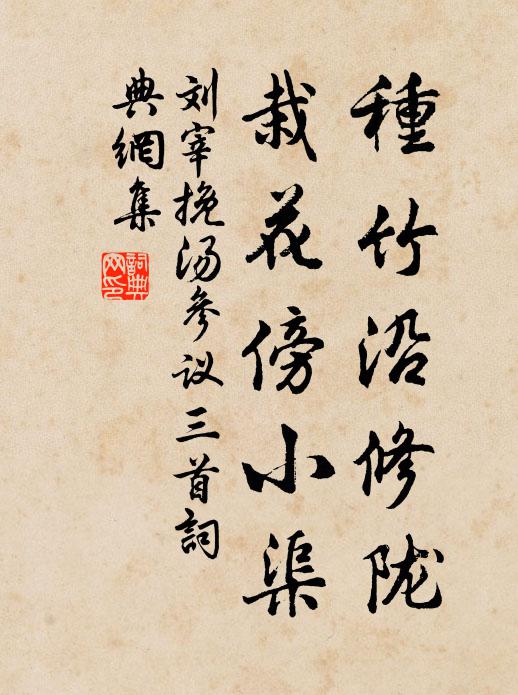 種竹沿修陇
栽花傍小渠
刘宰挽汤参议三首詞
典網集
詞典网印